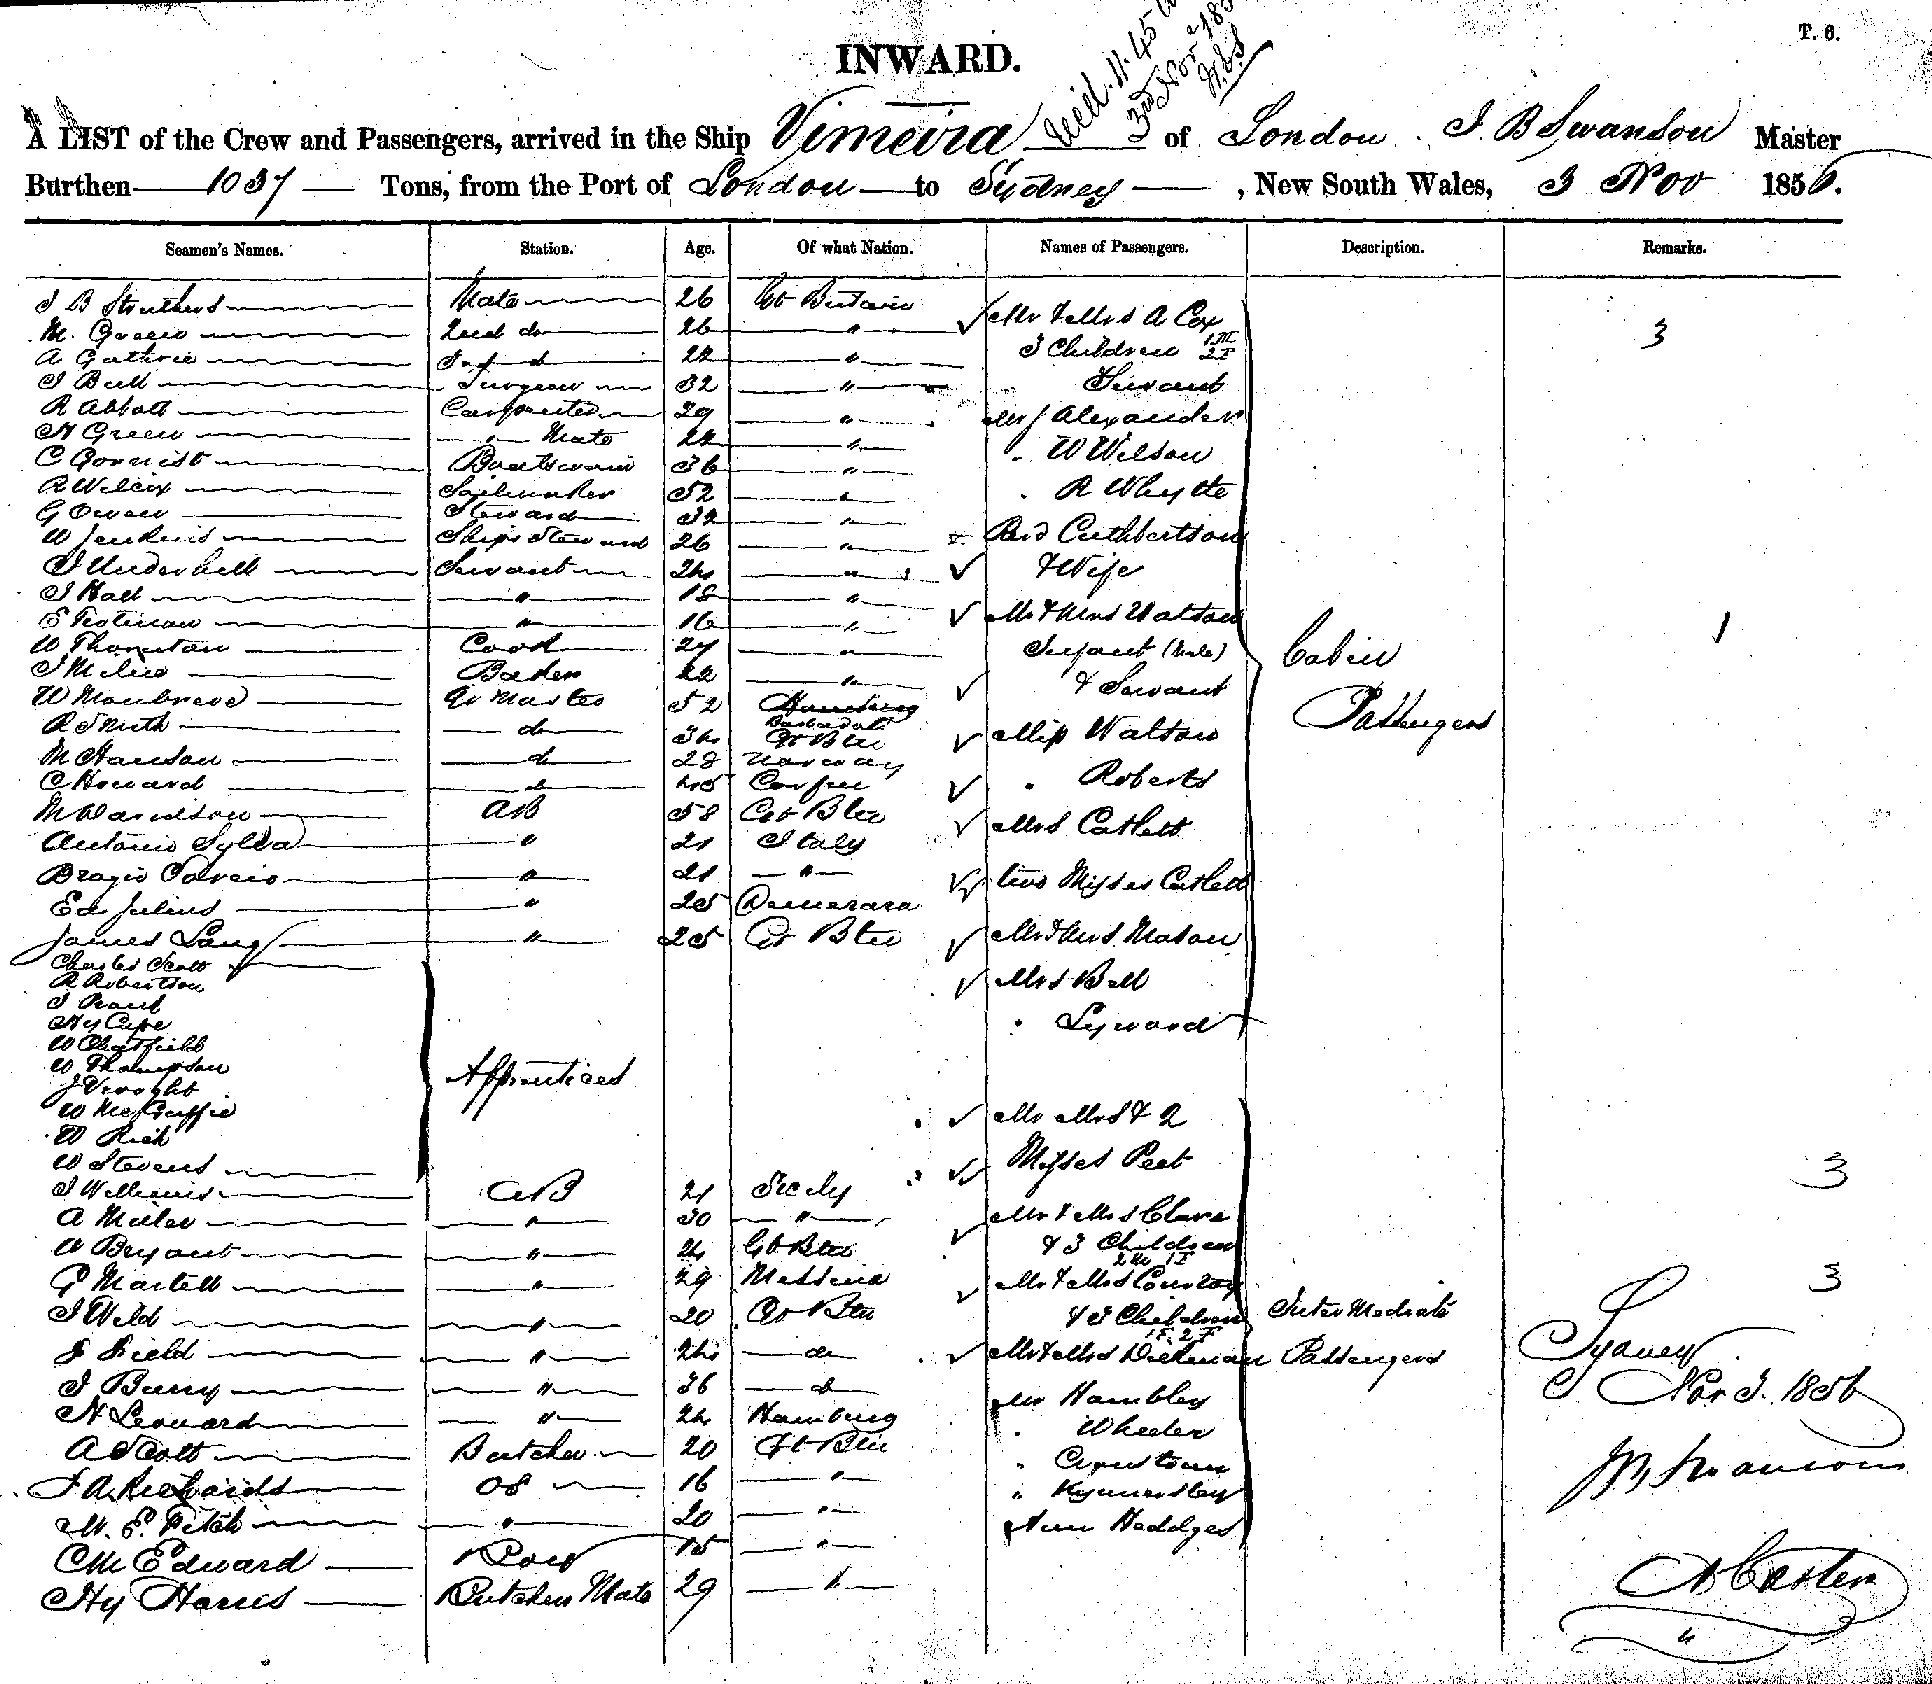 T. 6.
INWARD.
3rd Nov
A LIST of the Crew and Passengers, arrived in the Ship Vimeira of London J. B Swanson Master
Burthen 1037 Tons, from the Port of London to Sydney, New South Wales, 3 Nov 1856.
Seamen's Names. Station. Age. Of what Nation. Names of Passengers. Description. Remarks.
J B Struthers Mate 26 Gt Britain
Mr & Mrs A Cox
M. Green 2nd do 26 "
3 Children 1 M 2 F 3
A Guthrie 3rd d 22 "
J Bell Surgeon 32 "
Servant
R Abbott Carpenter 29 "
Mr J Alexander
H Green " Mate 22 "
" W Wilson
C Boatswain 36 "
R Wilcox Sailmaker 52 "
" R Whyte
G Owen Steward 32 "
W Jenkins Ships Steward 26 "
Revd Cuthbertson
J Underhill Servant 24 "
& Wife
J Hall " 18 "
Mr & Mrs Watson
E " 16 "
W Thornton Cook 27 "
Infant (Male) Cabin 1
J Baker 22 "
& Servant
W Qr Master 52 Barbados
Passengers
R Smith do 34 Gt Btn
Miss Watson
M Hanson d 28 Norway
C Howard d 45 Corfu
" Roberts
M Davidson AB 58 Gt Btn
Mrs Catlett
Antonio Sylva " 21 Italy
" 21 "
two Misses Catlett
Ed Julius " 25 Demerara
James Lang " 25 Gt Btn
Mr & Mrs Mason
Charles Scott
R Robertson
Mrs Bell
J
Hy Cape
" Lyward
W Chatfield
W Thompson
Apprentices
J
W McGuffie
Mr Mrs & 2
W Rich
Misses Peet
W Stevens
3
J Williams AB 21 Sicily
A Miller " 30 "
Mr & Mrs Clare
W Bryant " 24 Gt Btn
& 3 Children
2 M 1 F
G Martell " 29 Messina
Mr & Mrs
3
J Weld " 20 Gt Btn
& 3 Children Inter Mediate
J Field " 24 do
Mr & Mrs Dickman Passengers
Sydney
J Barry " 36 d
Mr Hambley
Nov 3. 1856
N Leonard " 24 Hamburg
" Wheeler
A Scott Butcher 20 Gt Btn
"
J B Swanson
J A Richards OS 16 "
" Kynnersley
M. E. Fitch " 20 "
Ann Heddges
C M Edward Boy 15 "
Hy Harris Butchers Mate 29 "